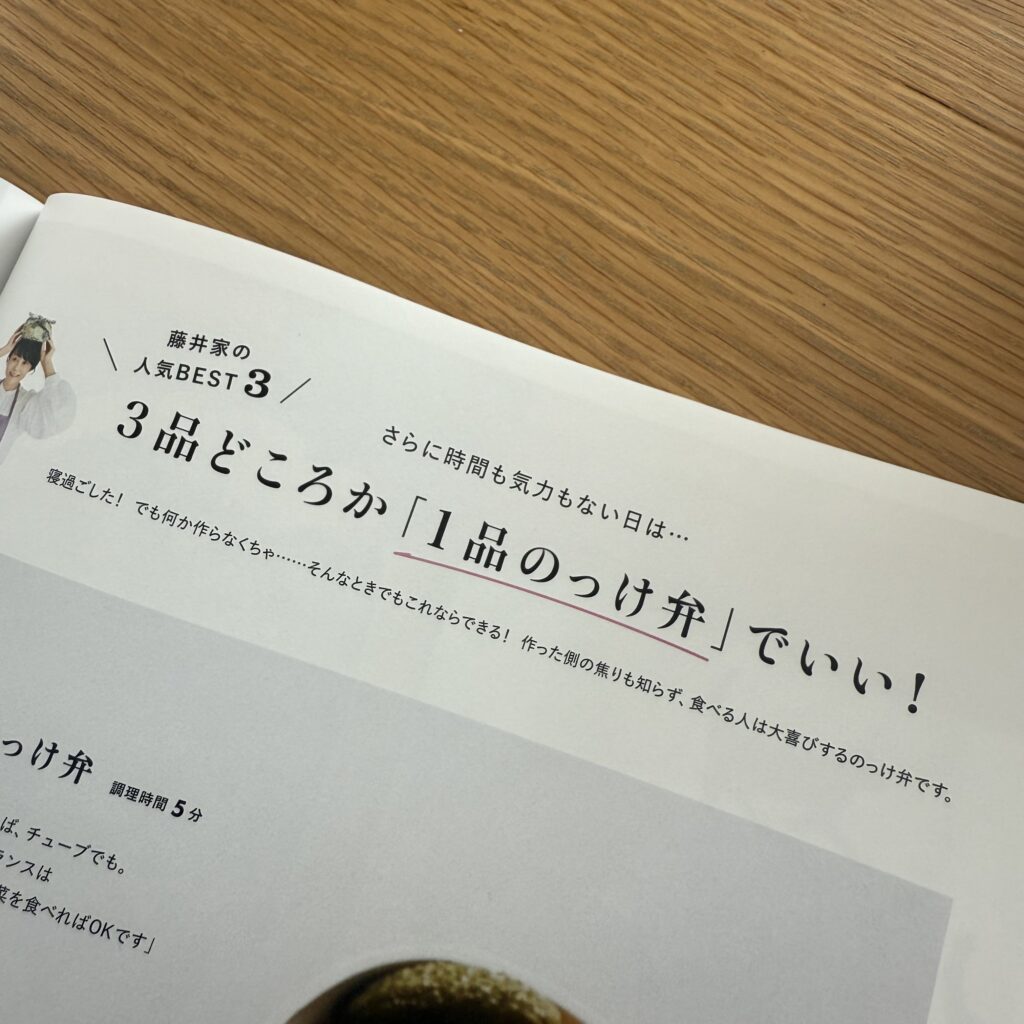 藤井家の
人気BEST3
さらに時間も気力もない日は…
3品どころか「1品のっけ弁」でいい！
寝過ごした！ でも何か作らなくちゃ……そんなときでもこれならできる！ 作った側の焦りも知らず、食べる人は大喜びするのっけ弁です。
っけ弁 調理時間5分
ば、チューブでも。
ランスは
菜を食べればOKです」